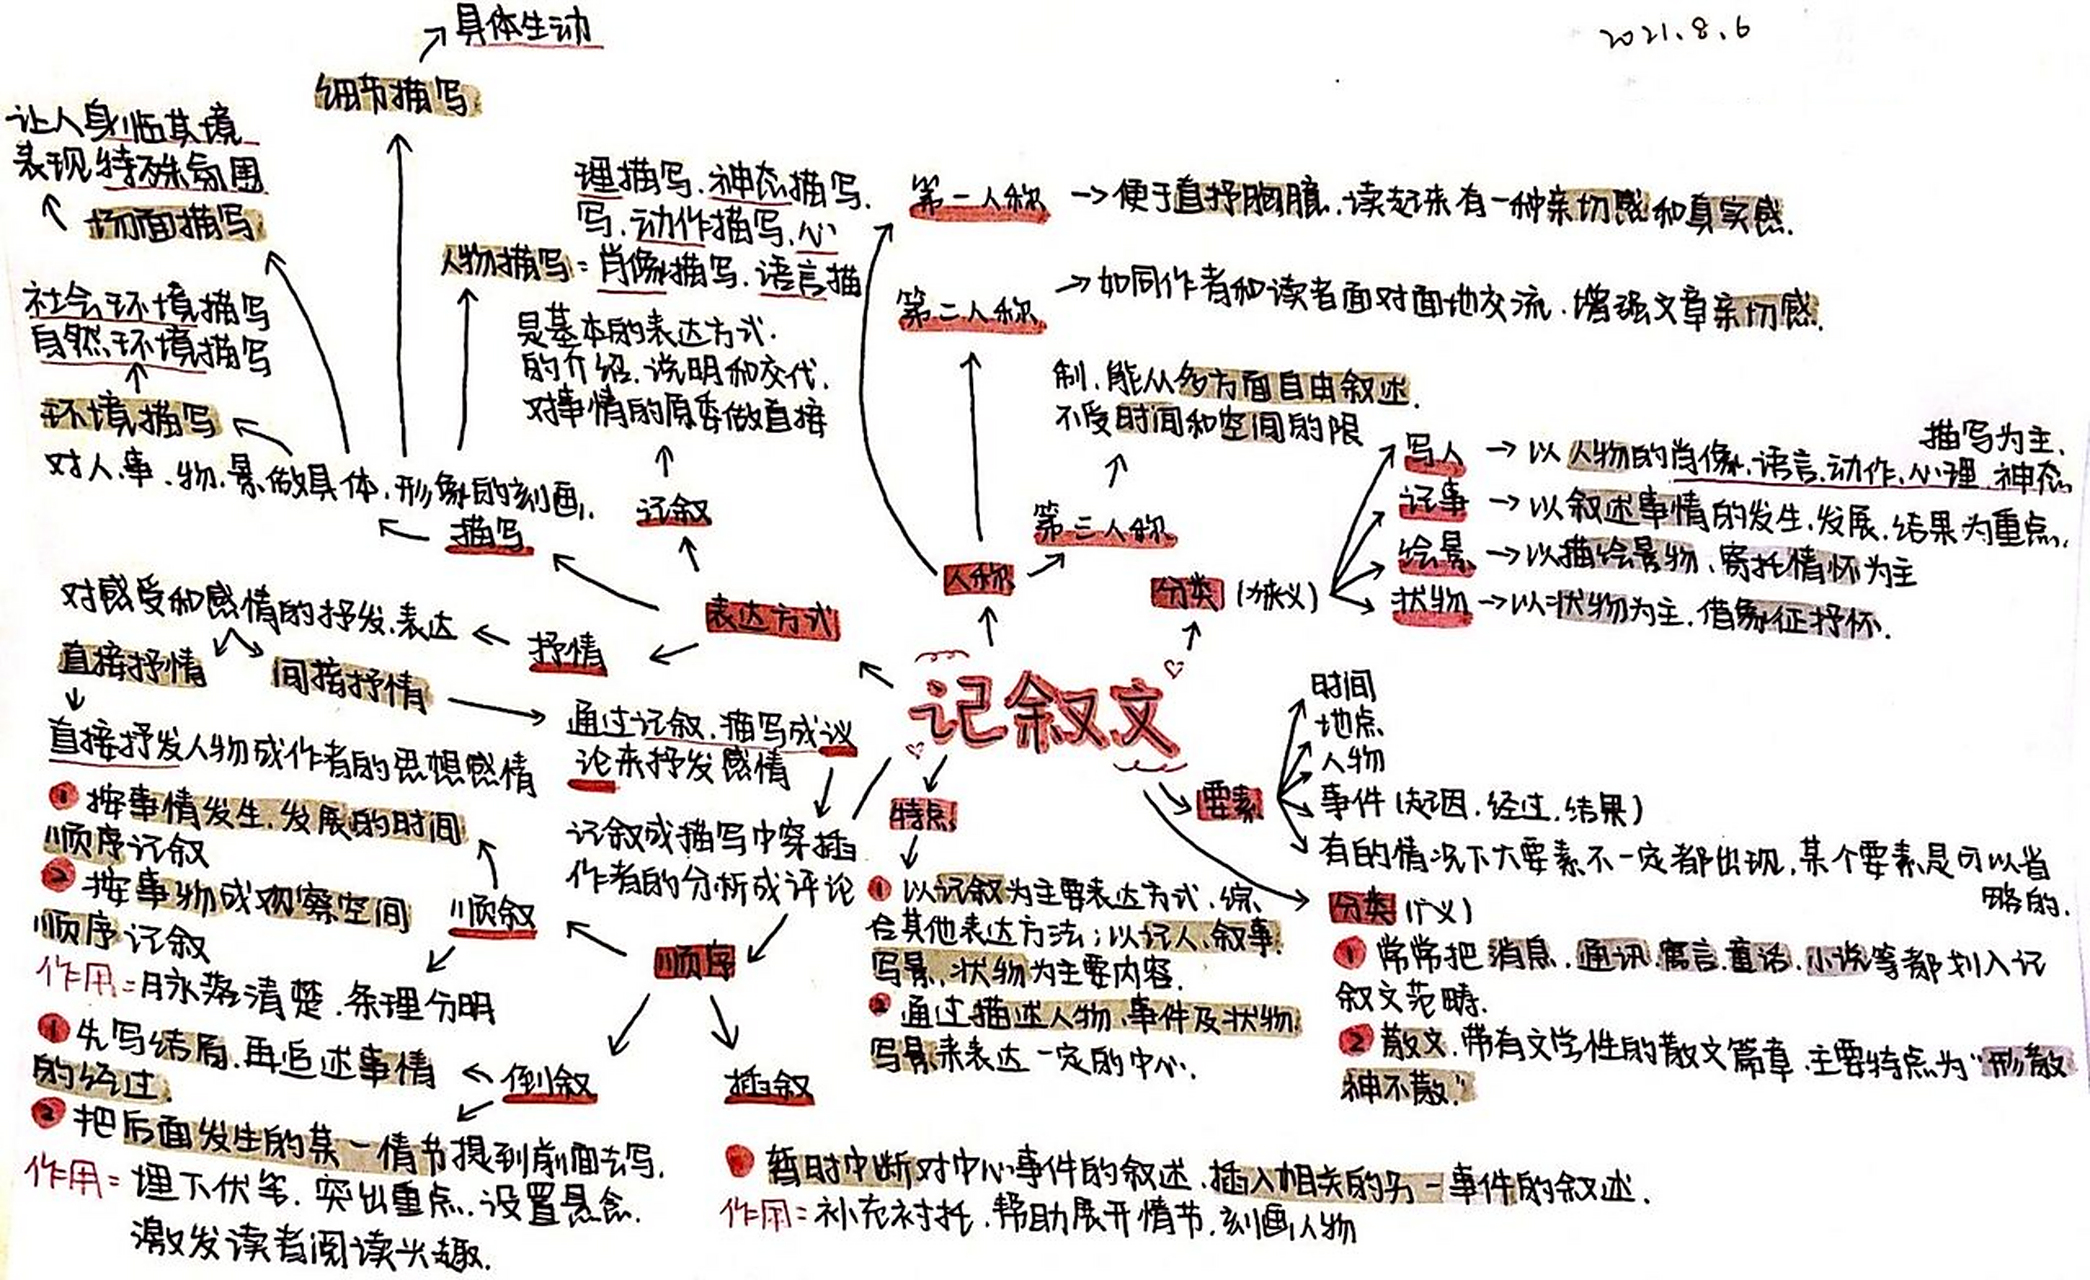 2021.8.6
具体生动
细节描写
让人身临其境
表现特殊氛围
场面描写
社会环境描写
自然环境描写
环境描写
理描写、神态描写、
写、动作描写、心
人物描写:肖像描写、语言描
是基本的表达方式.
的介绍、说明和交代、
对事情的原委做直接
记叙
对人、事、物、景做具体、形象的刻画,
描写
第一人称 → 便于直抒胸臆、读起来有一种亲切感和真实感.
第二人称 → 如同作者和读者面对面地交流、增强文章亲切感.
制、能从多方面自由叙述.
不受时间和空间的限
第三人称
人称
分类(狭义)
描写为主.
写人 → 以人物的肖像、语言、动作、心理、神态
记事 → 以叙述事情的发生、发展、结果为重点,
绘景 → 以描绘景物、寄托情怀为主
状物 → 以状物为主、借象征抒怀.
表达方式
对感受和感情的抒发、表达
抒情
直接抒情
间接抒情
直接抒发人物或作者的思想感情
通过记叙、描写或议
论来抒发感情
记叙或描写中穿插
作者的分析或评论
记叙文
要素
时间
地点
人物
事件(起因、经过、结果)
有的情况下六要素不一定都出现,某个要素是可以省
略的.
特点
① 以记叙为主要表达方式、综
合其他表达方法;以记人、叙事、
写景、状物为主要内容.
② 通过描述人物、事件及状物、
写景来表达一定的中心.
分类(广义)
① 常常把消息、通讯、寓言、童话、小说等都划入记
叙文范畴.
② 散文、带有文学性的散文篇章、主要特点为“形散
神不散.”
顺序
顺叙
① 按事情发生、发展的时间
顺序记叙
② 按事物或观察空间
顺序记叙
作用:脉络清楚、条理分明
倒叙
① 先写结局、再追述事情
的经过.
② 把后面发生的某一情节提到前面去写.
作用:埋下伏笔、突出重点、设置悬念.
激发读者阅读兴趣.
插叙
暂时中断对中心事件的叙述、插入相关的另一事件的叙述.
作用:补充衬托、帮助展开情节、刻画人物